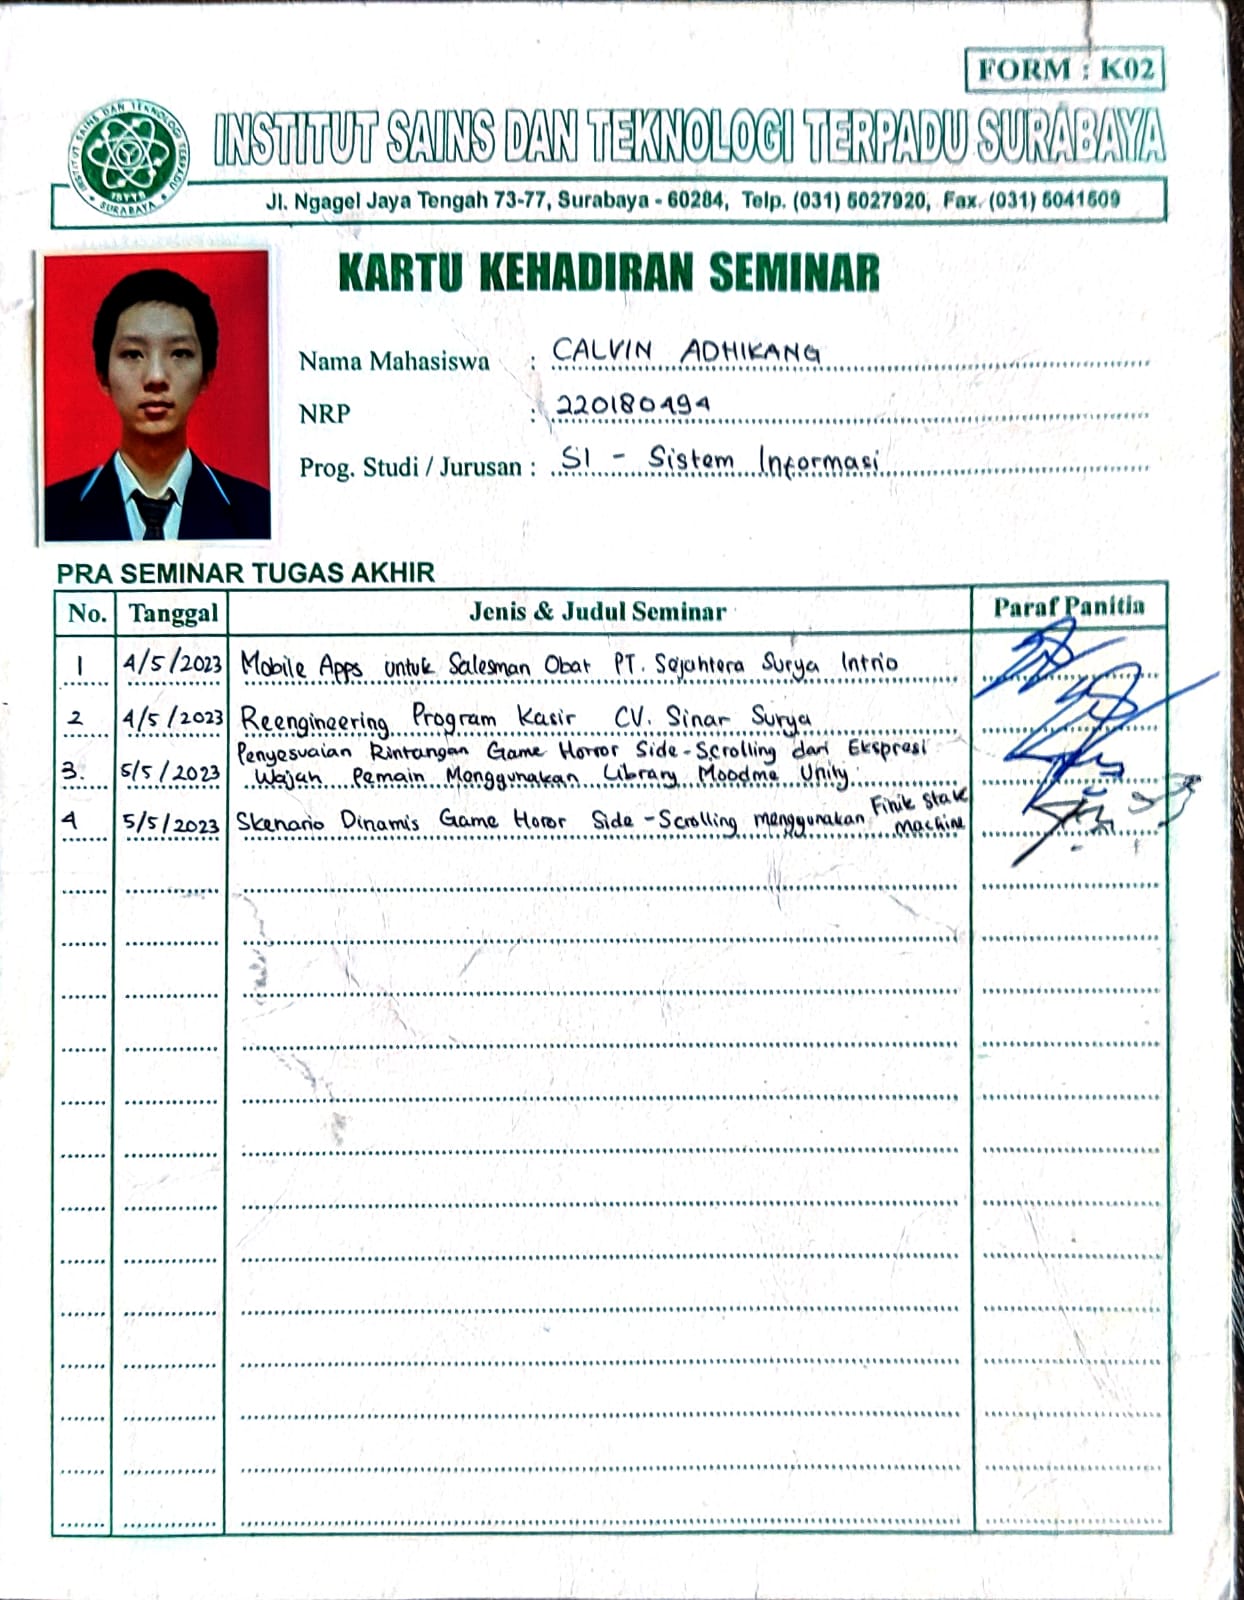 FORM : K02
INSTITUT SAINS DAN TEKNOLOGI TERPADU SURABAYA
Jl. Ngagel Jaya Tengah 73-77, Surabaya - 60284, Telp. (031) 5027920, Fax. (031) 5041509
INSTITUT SAINS DAN TEKNOLOGI TERPADU
SURABAYA
KARTU KEHADIRAN SEMINAR
Nama Mahasiswa : CALVIN ADHIKANG
NRP : 220180494
Prog. Studi / Jurusan : S1 - Sistem Informasi
PRA SEMINAR TUGAS AKHIR
No. Tanggal Jenis & Judul Seminar Paraf Panitia
1 4/5/2023 Mobile Apps untuk Salesman Obat PT. Sejahtera Surya Intrio
2 4/5/2023 Reengineering Program Kasir CV. Sinar Surya
3. 5/5/2023 Penyesuaian Rintangan Game Horror Side-Scrolling dari Ekspresi
Wajah Pemain Menggunakan Library Moodme Unity
4 5/5/2023 Skenario Dinamis Game Horor Side-Scrolling menggunakan Finite State
Machine